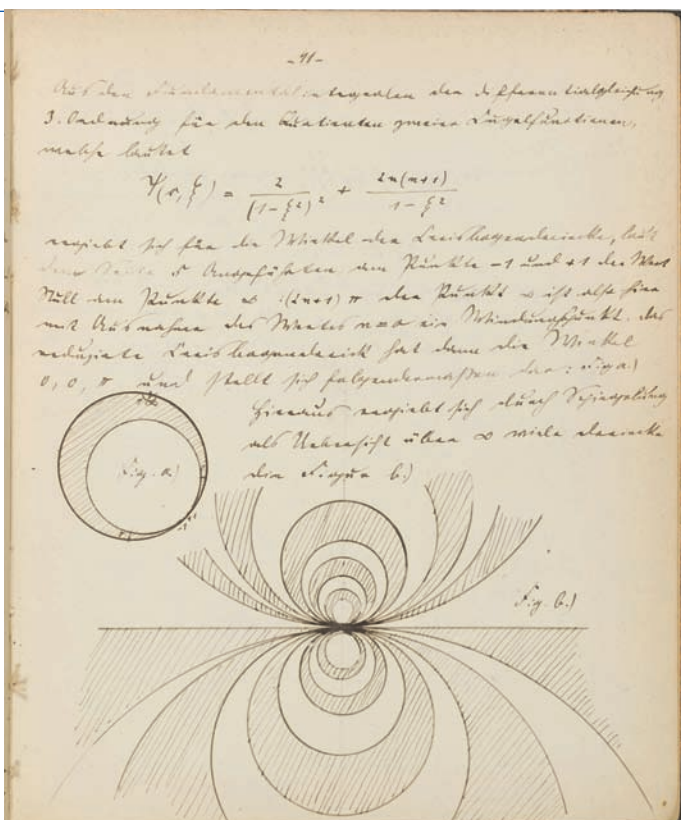 -91-
Aus den Fundamentalintegralen der Differentialgleichung
3. Ordnung für den Quotienten zweier Kugelfunctionen,
welche lautet
Ψ(s, ξ) = 2/(1-ξ²)² + 2n(n+1)/(1-ξ²)
ergiebt sich für die Winkel der Kreisbogendreiecke, laut
dem Seite 5 Angeführten, am Punkte -1 und +1 der Wert
Null am Punkte ∞ : (2n+1) π der Punkt ∞ ist also hier
mit Ausnahme des Wertes n=0 ein Windungspunkt. das
reduzierte Kreisbogendreieck hat dann die Winkel
0, 0, π und stellt sich folgendermassen dar: Fig a)
Hieraus ergiebt sich durch Spiegelung
als Uebersicht über ∞ viele dreiecke
die Figur b.)
Fig. a.)
-1
Fig. b.)